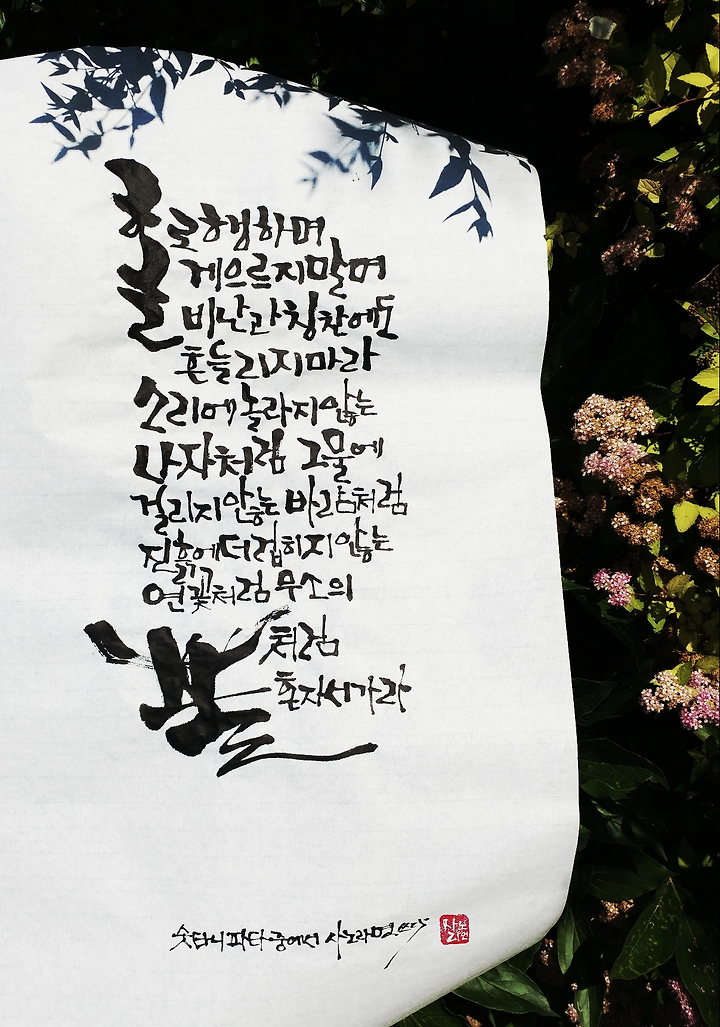 홀로 행하며
게으르지 말며
비난과 칭찬에도
흔들리지 마라
소리에 놀라지 않는
사자처럼 그물에
걸리지 않는 바람처럼
진흙에 더럽히지 않는
연꽃처럼 무소의
뿔처럼
혼자서 가라
숫타니파타 중에서 사노라면